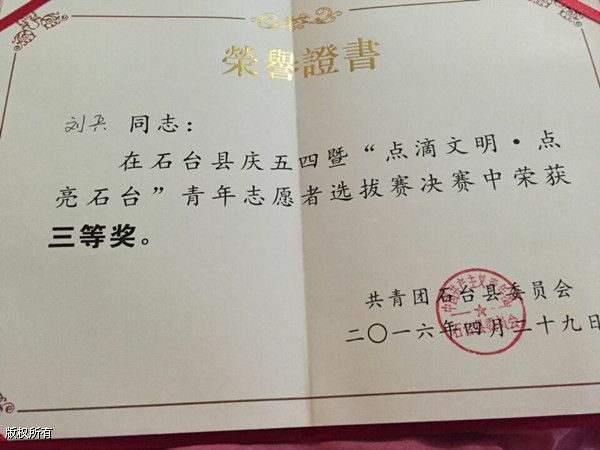 榮譽證書
刘兵 同志：
在石台县庆五四暨“点滴文明·点
亮石台”青年志愿者选拔赛决赛中荣获
三等奖。
共青团石台县委员会
二〇一六年四月二十九日
中国共产主义青年团
石台县委员会
版权所有